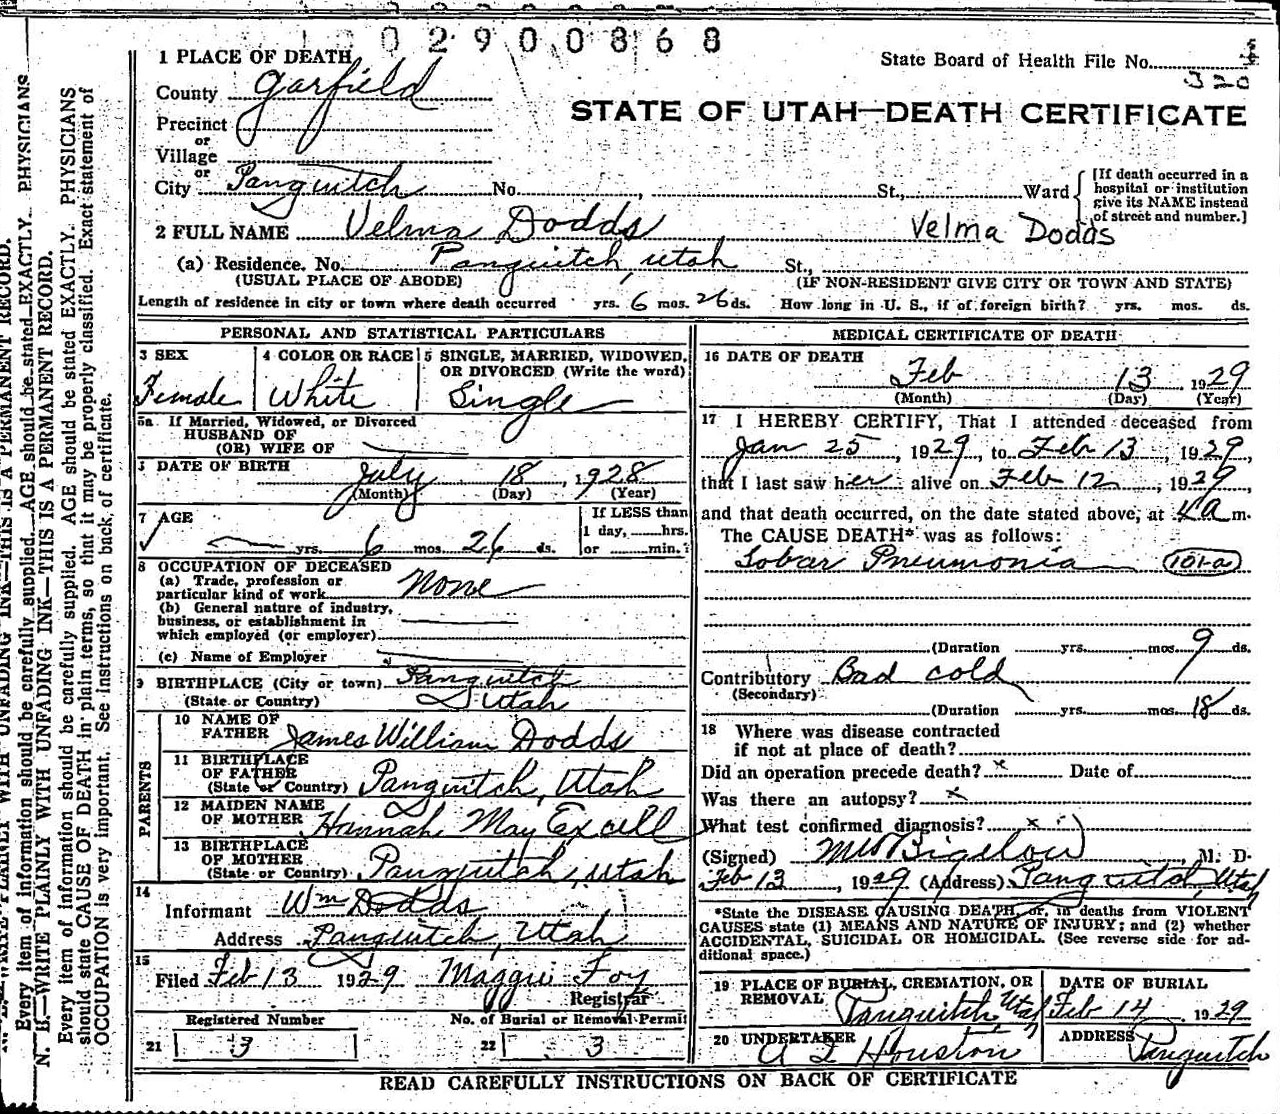 0 2 9 0 0 8 6 8
1 PLACE OF DEATH
State Board of Health File No.
320
County Garfield
STATE OF UTAH—DEATH CERTIFICATE
Precinct
or
Village
or
City Panguitch No. , St., Ward
[If death occurred in a hospital or institution give its NAME instead of street and number.]
2 FULL NAME Velma Dodds
Velma Dodds
(a) Residence. No. Panguitch, Utah St.,
(USUAL PLACE OF ABODE) (IF NON-RESIDENT GIVE CITY OR TOWN AND STATE)
Length of residence in city or town where death occurred yrs. 6 mos. 26 ds. How long in U. S., if of foreign birth? yrs. mos. ds.
PERSONAL AND STATISTICAL PARTICULARS
3 SEX
Female
4 COLOR OR RACE
White
5 SINGLE, MARRIED, WIDOWED, OR DIVORCED (Write the word)
Single
5a If Married, Widowed, or Divorced
HUSBAND OF
(OR) WIFE OF
DATE OF BIRTH July 18, 1928
(Month) (Day) (Year)
7 AGE
yrs. 6 mos. 26 ds.
If LESS than
1 day, hrs.
or min.?
8 OCCUPATION OF DECEASED
(a) Trade, profession or
particular kind of work None
(b) General nature of industry,
business, or establishment in
which employed (or employer)
(c) Name of Employer
9 BIRTHPLACE (City or town) Panguitch
(State or Country) Utah
PARENTS
10 NAME OF
FATHER James William Dodds
11 BIRTHPLACE
OF FATHER
(State or Country) Panguitch, Utah
12 MAIDEN NAME
OF MOTHER Hannah May Excell
13 BIRTHPLACE
OF MOTHER
(State or Country) Panguitch, Utah
14
Informant Wm Dodds
Address Panguitch, Utah
15
Filed Feb 13 1929 Maggie Foy
Registrar
Registered Number No. of Burial or Removal Permit
21 3 22 3
MEDICAL CERTIFICATE OF DEATH
16 DATE OF DEATH
Feb 13 1929
(Month) (Day) (Year)
17 I HEREBY CERTIFY, That I attended deceased from
Jan 25, 1929, to Feb 13, 1929,
that I last saw her alive on Feb 12, 1929,
and that death occurred, on the date stated above, at 4 a m.
The CAUSE DEATH* was as follows:
Lobar Pneumonia 101-a
(Duration yrs. mos. 9 ds.
Contributory Bad cold
(Secondary)
(Duration yrs. mos. 18 ds.
18 Where was disease contracted
if not at place of death?
Did an operation precede death? x Date of
Was there an autopsy? x
What test confirmed diagnosis? x
(Signed) Bigelow, M. D.
Feb 13, 1929 (Address) Panguitch, Utah
*State the DISEASE CAUSING DEATH, or, in deaths from VIOLENT
CAUSES state (1) MEANS AND NATURE OF INJURY; and (2) whether
ACCIDENTAL, SUICIDAL OR HOMICIDAL. (See reverse side for additional space.)
19 PLACE OF BURIAL, CREMATION, OR
REMOVAL Panguitch Utah
DATE OF BURIAL
Feb 14 1929
20 UNDERTAKER
Houston
ADDRESS
Panguitch
READ CAREFULLY INSTRUCTIONS ON BACK OF CERTIFICATE
N. B.—WRITE PLAINLY WITH UNFADING INK—THIS IS A PERMANENT RECORD.
Every item of information should be carefully supplied. AGE should be stated EXACTLY. PHYSICIANS
should state CAUSE OF DEATH in plain terms, so that it may be properly classified. Exact statement of
OCCUPATION is very important. See instructions on back of certificate.